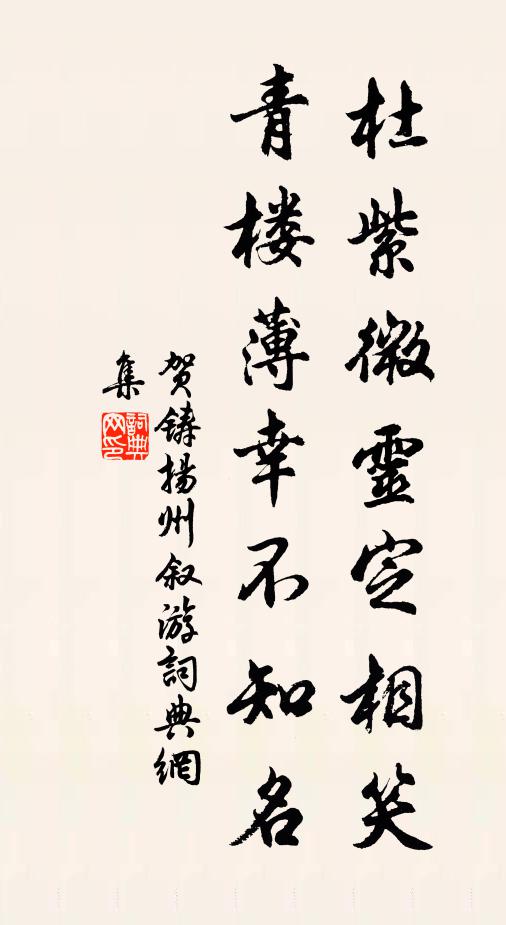 杜紫微靈定相笑
青楼薄幸不知名
贺鑄揚州叙游詞典網
集
詞典网印